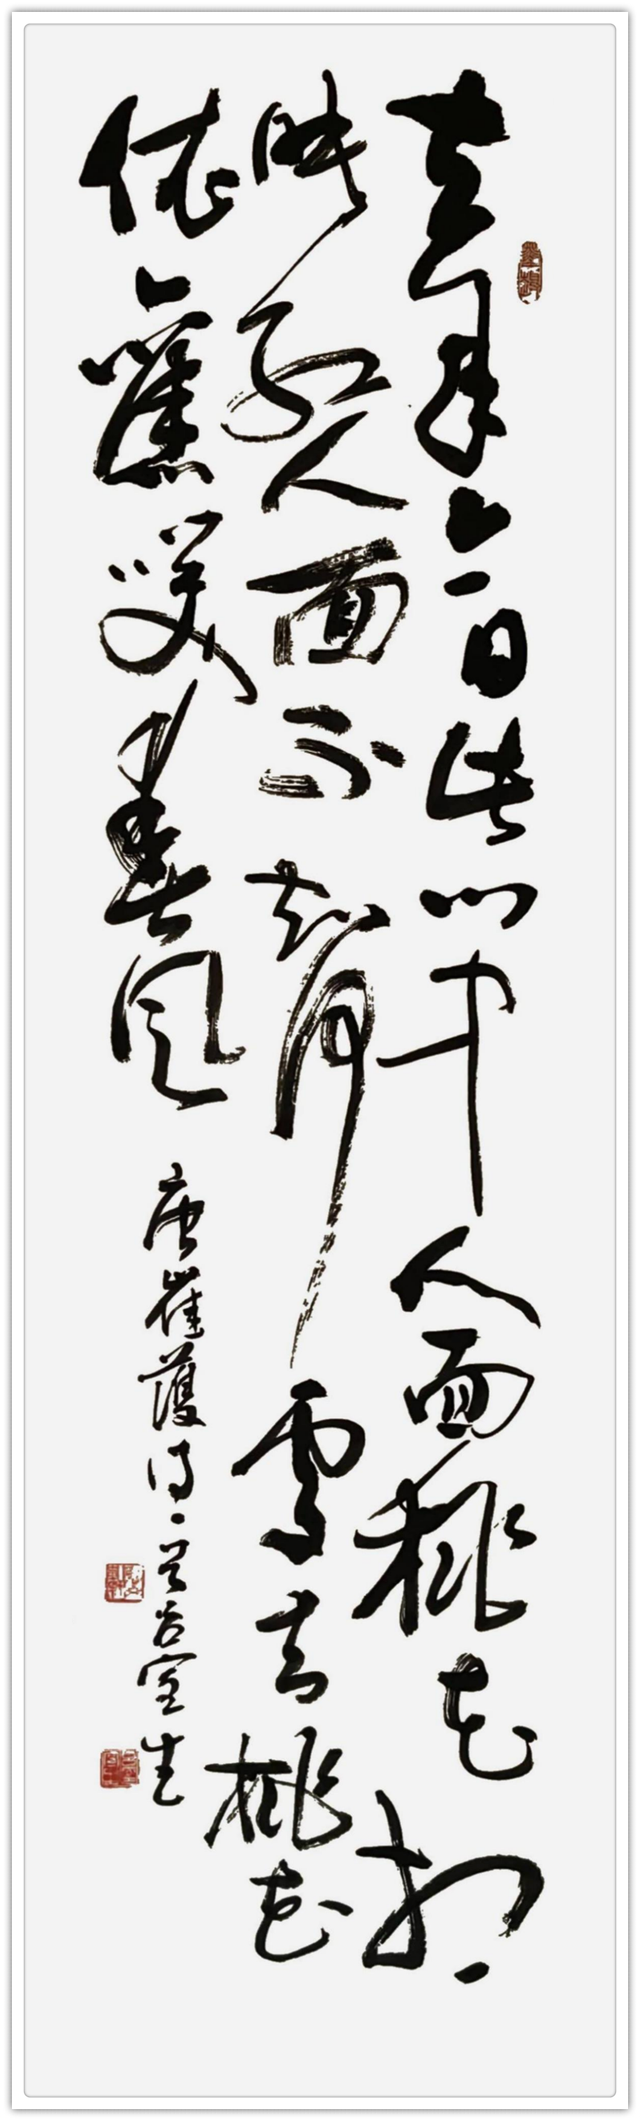 去年今日此门中人面桃花相
映红人面不知何處去桃花
依舊笑春风
唐崔護诗